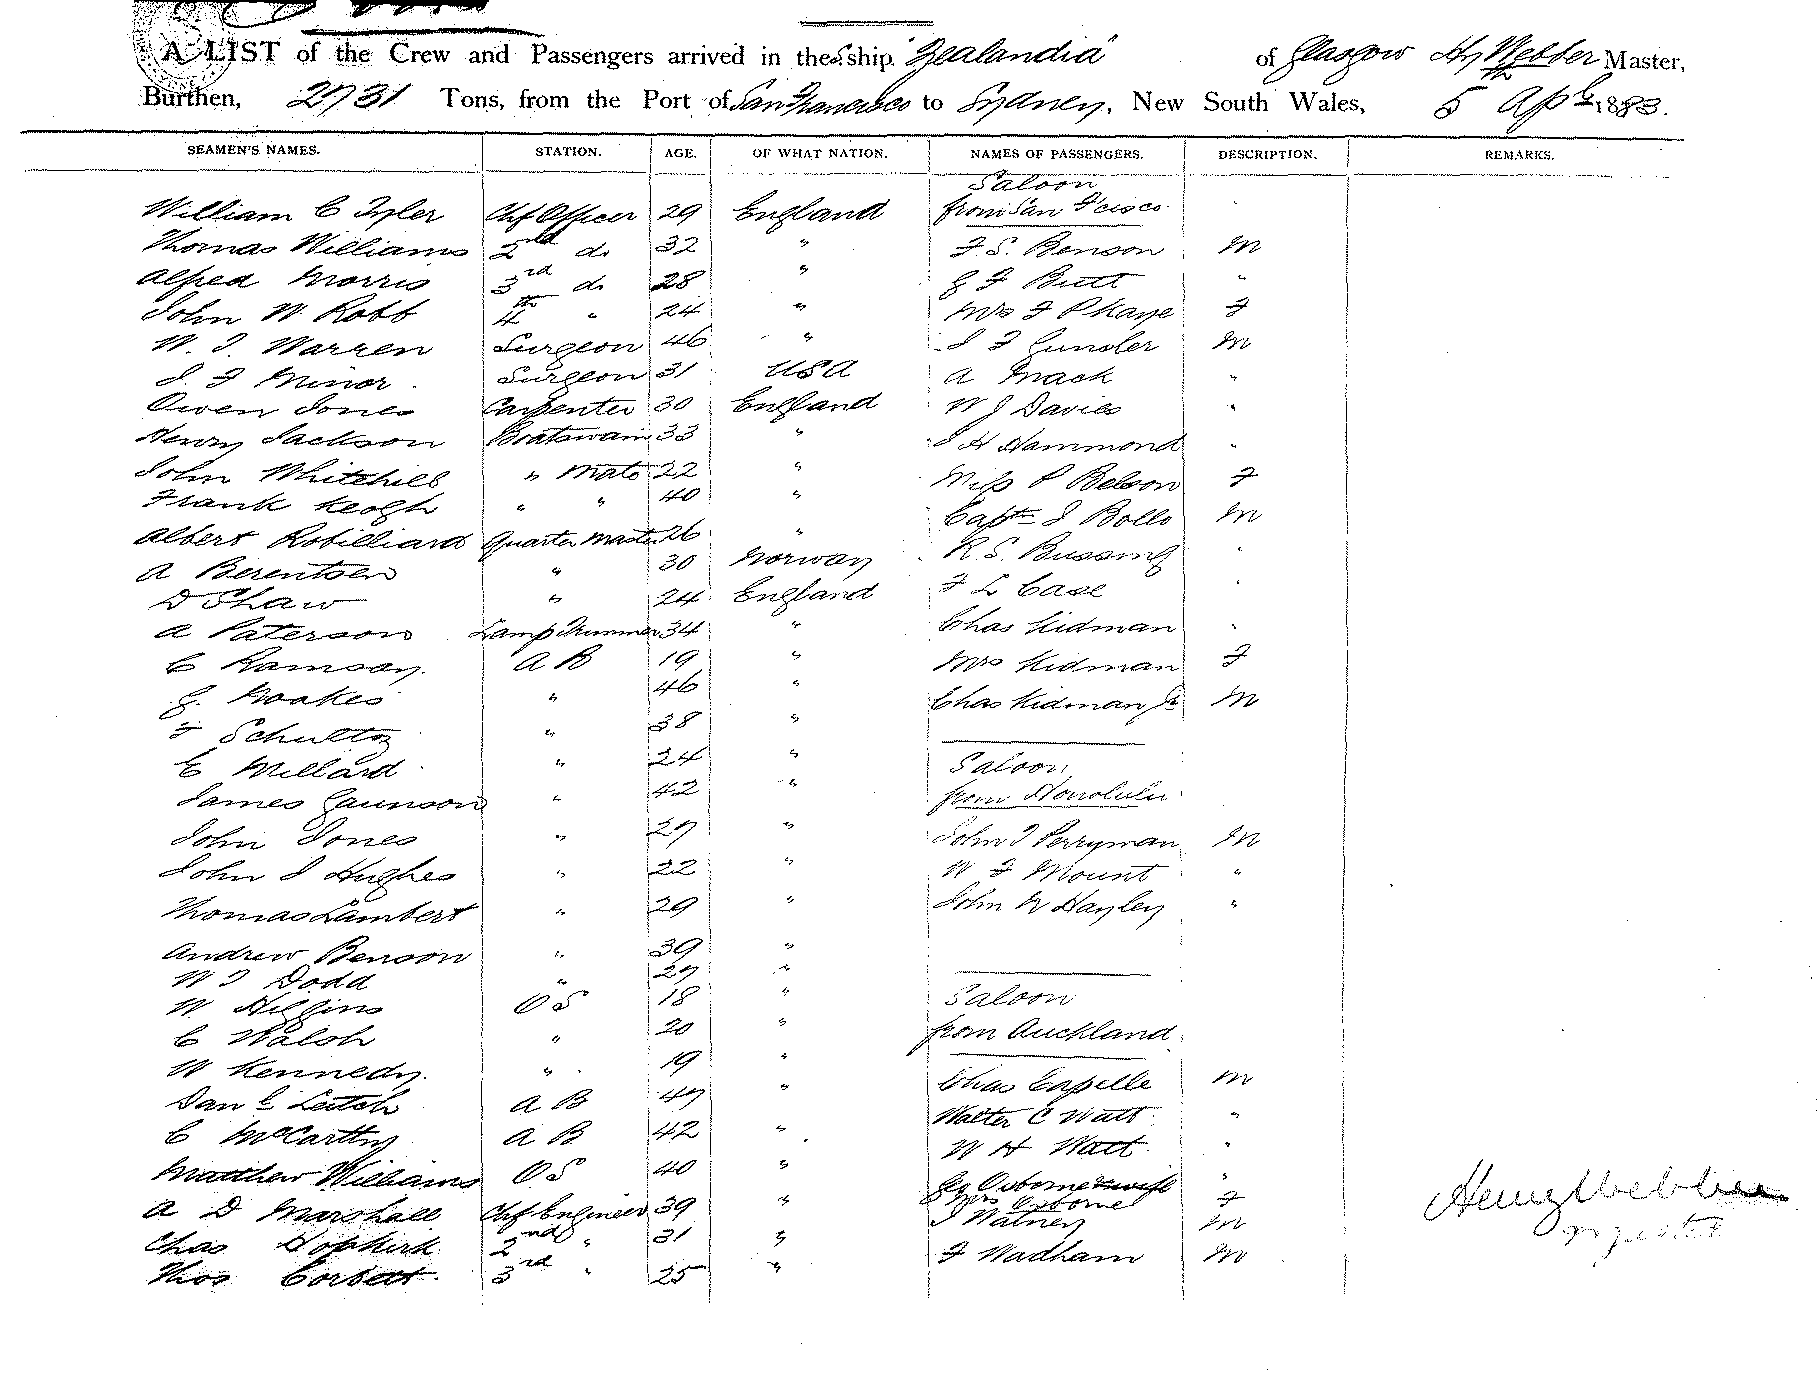 A LIST of the Crew and Passengers arrived in the S ship "Zealandia" of Glasgow Hy Webber Master,
Burthen, 2731 Tons, from the Port of San Francisco to Sydney, New South Wales, 5th Apl 1883.
SEAMEN'S NAMES. STATION. AGE. OF WHAT NATION. NAMES OF PASSENGERS. DESCRIPTION. REMARKS.
Saloon
William C Tyler Chf Officer 29 England from San F'cisco
Thomas Williams 2nd do 32 " F. S. Benson M
Alfred Morris 3rd do 28 " G F Butt "
John W Robb 4th " 24 " Mrs F Phaye F
W. J. Warren Surgeon 46 " J F Gunsler M
J. F Minor Surgeon 31 USA A Mack "
Owen Jones Carpenter 30 England W J Davies "
Henry Jackson Boatswain 33 " J H Hammond "
John Whitehill " Mate 22 " Miss P Belson F
Frank Keogh " " 40 "
Capt J Bollo M
Albert Robilliard Quarter Master 26 "
A Berentsen " 30 Norway R. S. Bussing "
D Shaw " 24 England F L Case "
A Paterson Lamp Trimmer 34 " Chas Kidman "
C Ramsay. A B 19 " Mrs Kidman F
G. Noakes " 46 " Chas Kidman Jr M
F Schultz " 38 "
C Millard " 24 " Saloon
James Gaunson " 42 " from Honolulu
John Jones " 27 " John T Perryman M
John J Hughes " 22 " W F Mount "
Thomas Lambert " 29 " John N Hayley "
Andrew Benson " 39 "
W J Dodd " 27 "
W. Higgins O S 18 " Saloon
C Walsh " 20 " from Auckland
W Kennedy. " 19 "
Dan C Leitch A B 47 " Chas Capelle M
C McCarthy A B 42 " Walter C Watt "
W H Watt "
Matthew Williams O S 40 " Osborne & wife "
A D Marshall Chf Engineer 39 " Mrs Osborne F
Chas Hopkirk 2nd " 31 " J Watney M
Thos Corbett 3rd " 25 " F Wadham M
Henry Webber
Master